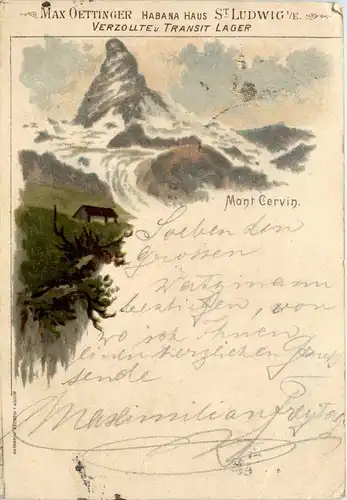 MAX OETTINGER HABANA HAUS ST LUDWIG I/E.
VERZOLLTE U TRANSIT LAGER
Mont Cervin.
Soeben den
grossen
Watzmann
bestiegen, von
wo ich Ihnen
einen herzlichen Gruss
sende
Maximilian